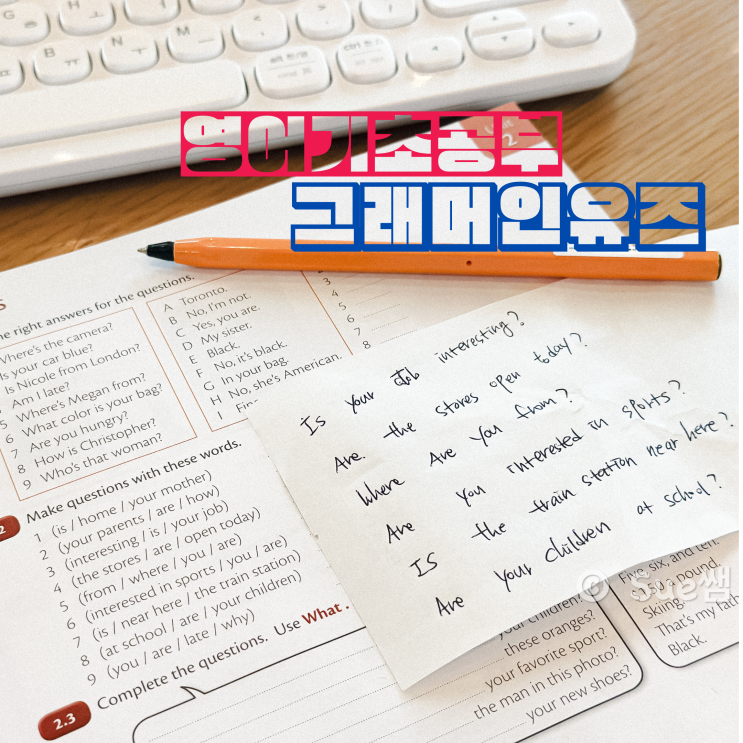 영어기초공부
그래머인유즈
Unit
2
he right answers for the questions.
Where's the camera?
Is your car blue?
Is Nicole from London?
Am I late?
5 Where's Megan from?
6 What color is your bag?
7 Are you hungry?
8 How is Christopher?
9 Who's that woman?
A Toronto.
B No, I'm not.
C Yes, you are.
D My sister.
E Black.
F No, it's black.
G In your bag.
H No, she's American.
I
3
4
5
6
7
8
Is your job interesting?
Are the stores open today?
Where Are you from?
Are you interested in sports?
IS the train station near here?
Are your children at school?
2 Make questions with these words.
1 (is / home / your mother)
2 (your parents / are / how)
3 (interesting / is / your job)
4 (the stores / are / open today)
5 (from / where / you / are)
6 (interested in sports / you / are)
7 (is / near here / the train station)
8 (at school / are / your children)
9 (you / are / late / why)
2.3 Complete the questions. Use What .
your children?
these oranges?
your favorite sport?
the man in this photo?
your new shoes?
Five, six, and ten.
a pound.
Skiing.
That's my fath
Black.
© Sue쌤